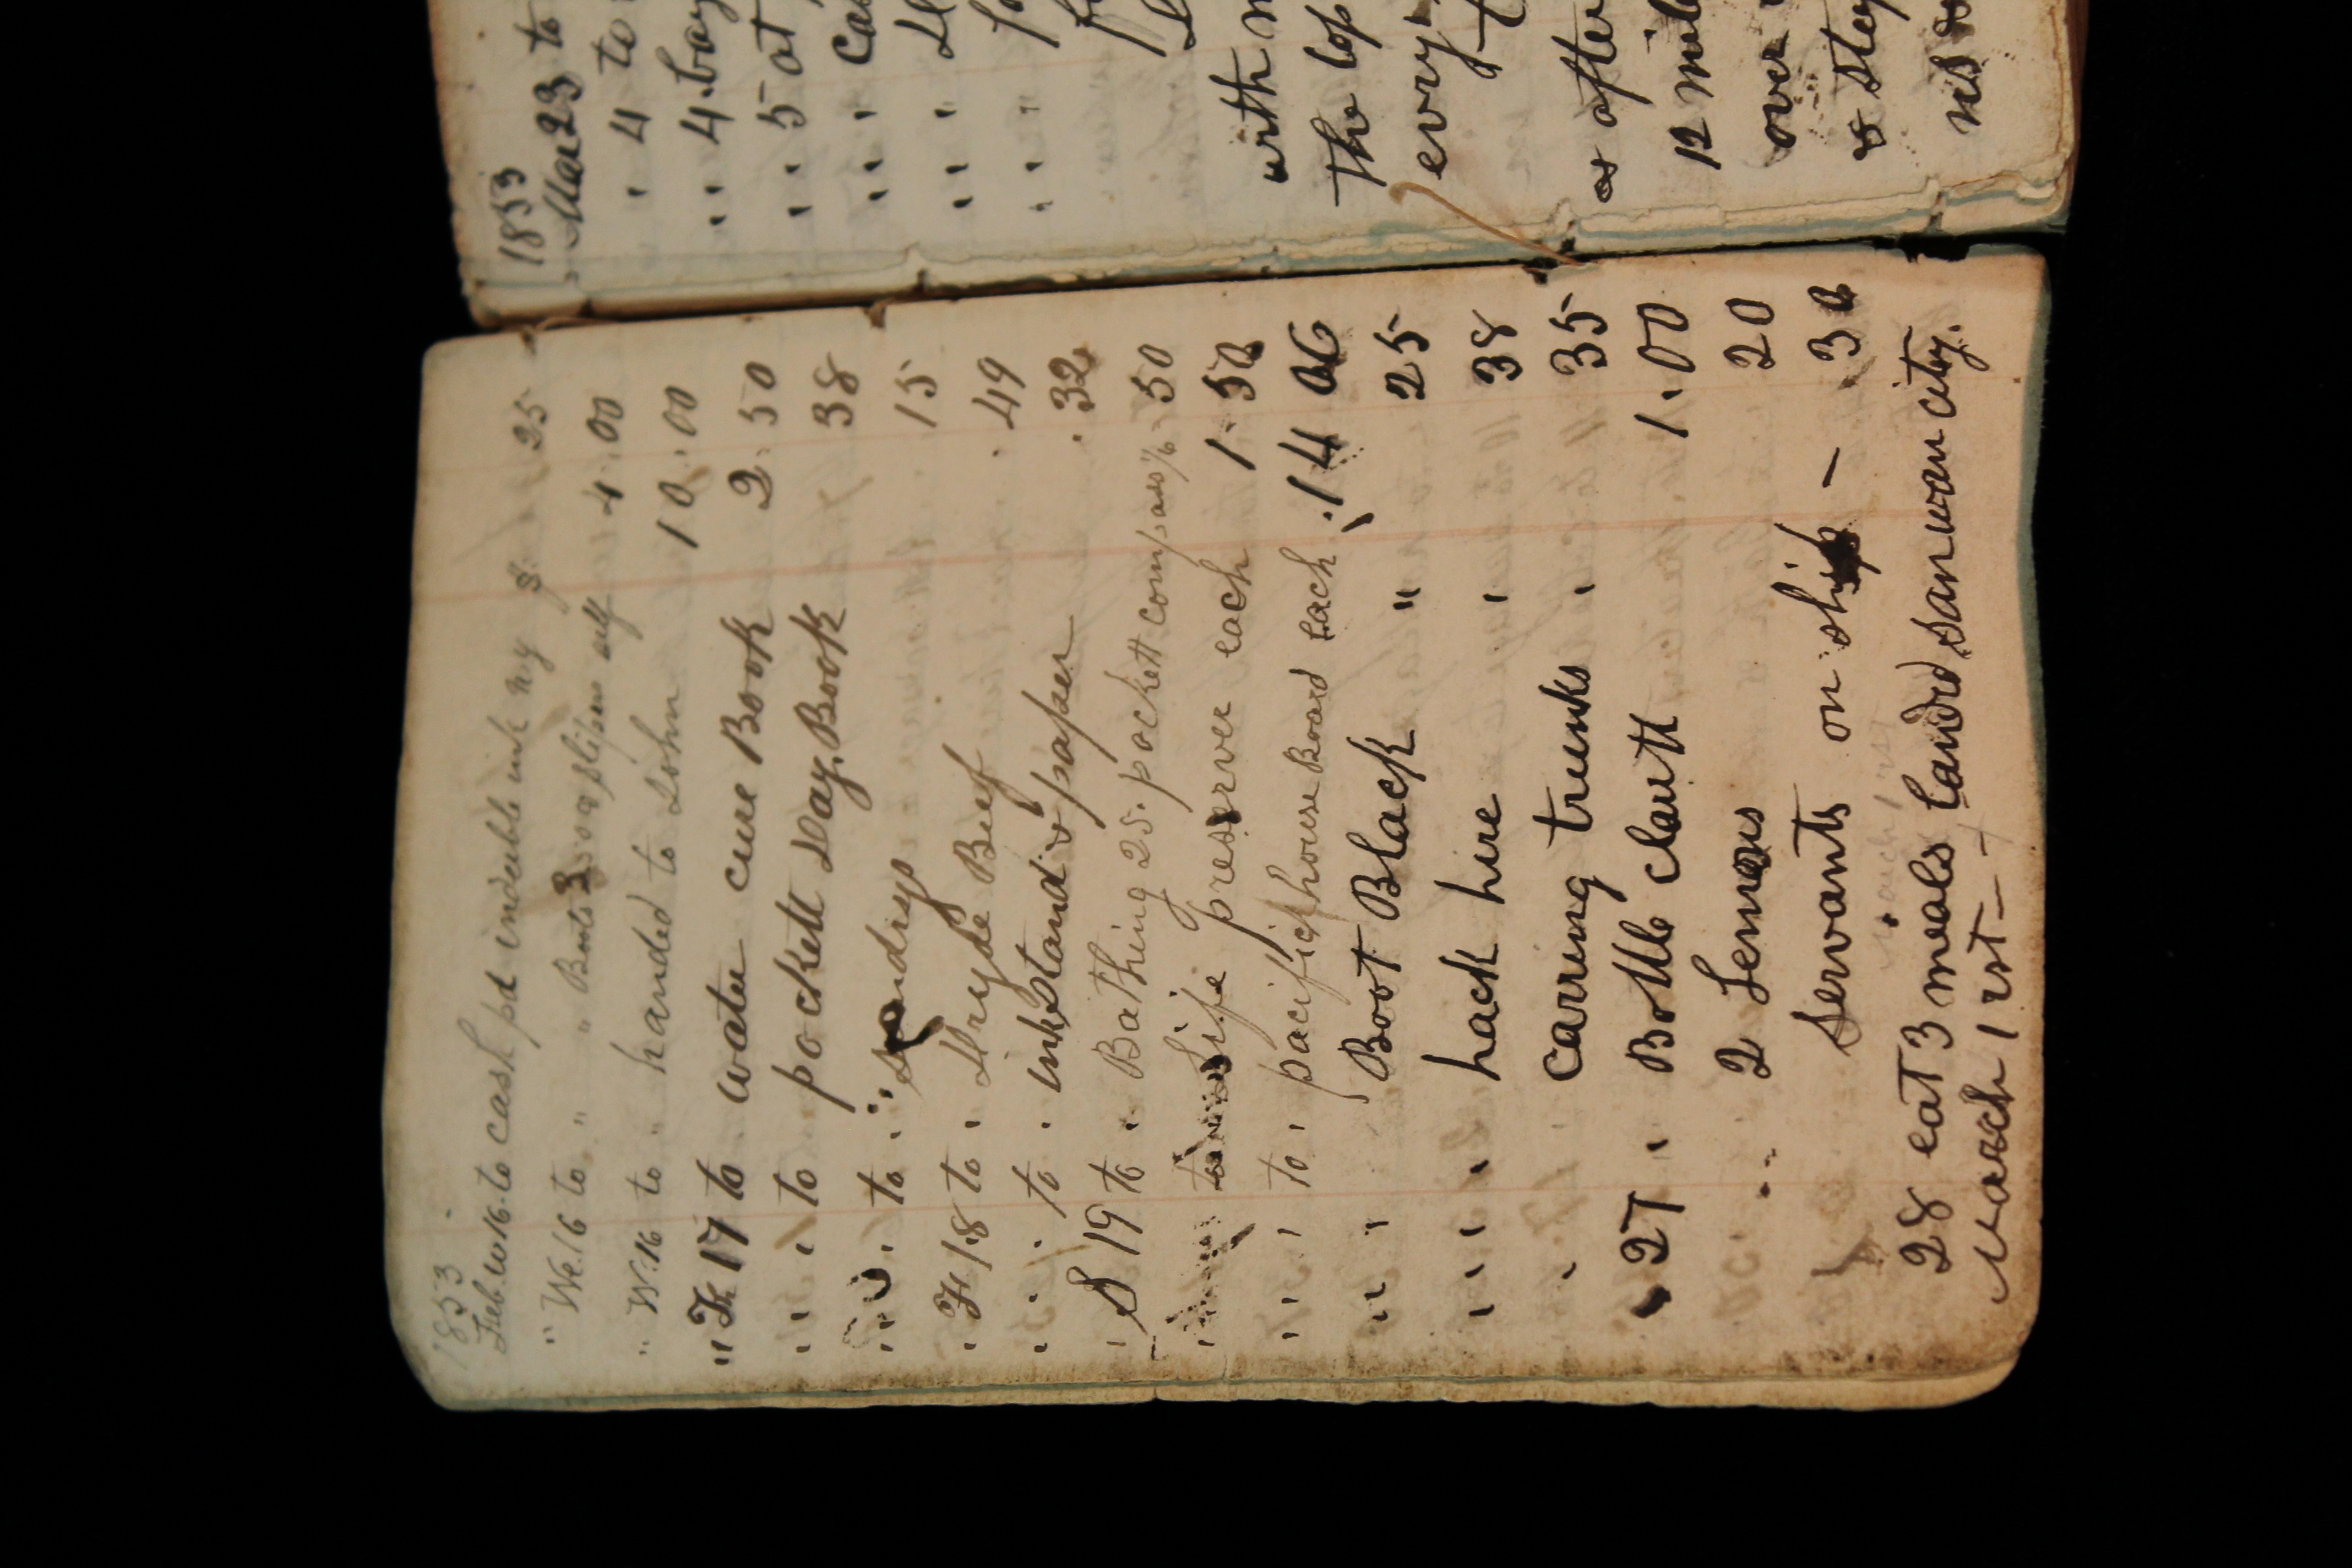 1853
Feb. W 16. to cash pd indeeble ink n.y $ 25
" We. 16 to " " Boots 3 slipers self 4.00
" W. 16 to " handed to John 10.00
" Th 17 to water cure Book 2.50
" " " to pockett Day. Book 38
to " sundrys 15
" F 18 to " Dryde Beef 49
" " " to " inkstand & paper 32
" S 19 to " Bathing 25. pockett compass 50
to Life preserver each 1.50
" " " to " pacific house Board each 14 06
" " " Boot Black " 25
" " " " hack hire " 38
" carring trunks " 35
" 27 " Bottle clarett 1.00
" 2 Lemons 20
servants on ship - 30
March 1rst
28 eat 3 meals landed san wan city.
March 1rst - -
1853
Mar 23 to
" 4 to
" " 4. bag
" " 5 at
" " "
" " "
" " "
with
the top
evry
& after
12
over
&